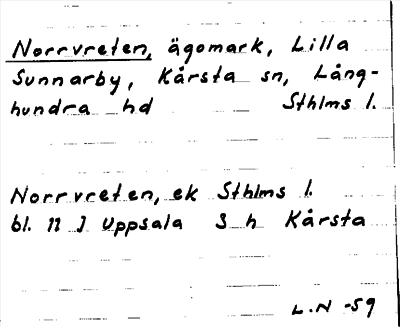 Norrvreten, ägomark, Lilla
Sunnarby, Kårsta sn, Lång-
hundra hd Sthlms l.
Norrvreten, ek Sthlms l.
bl. 11 J Uppsala S h Kårsta
L.N -59